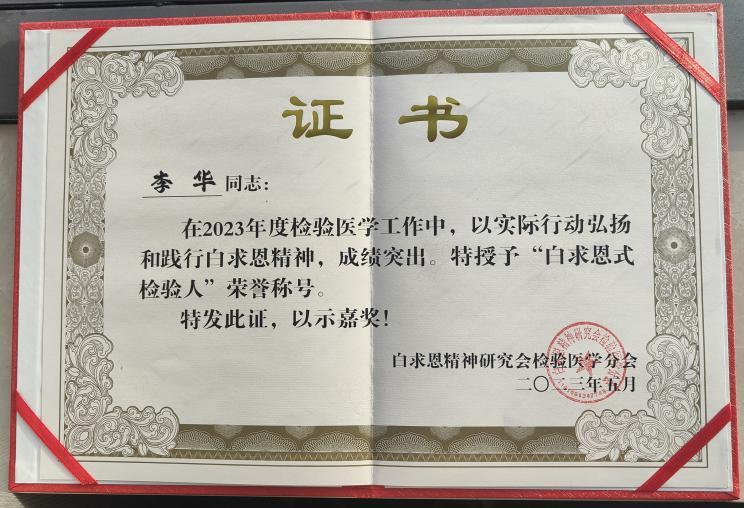 证书
李华同志：
在2023年度检验医学工作中，以实际行动弘扬
和践行白求恩精神，成绩突出。特授予“白求恩式
检验人”荣誉称号。
特发此证，以示嘉奖！
白求恩精神研究会检验医学分会
二〇二三年五月